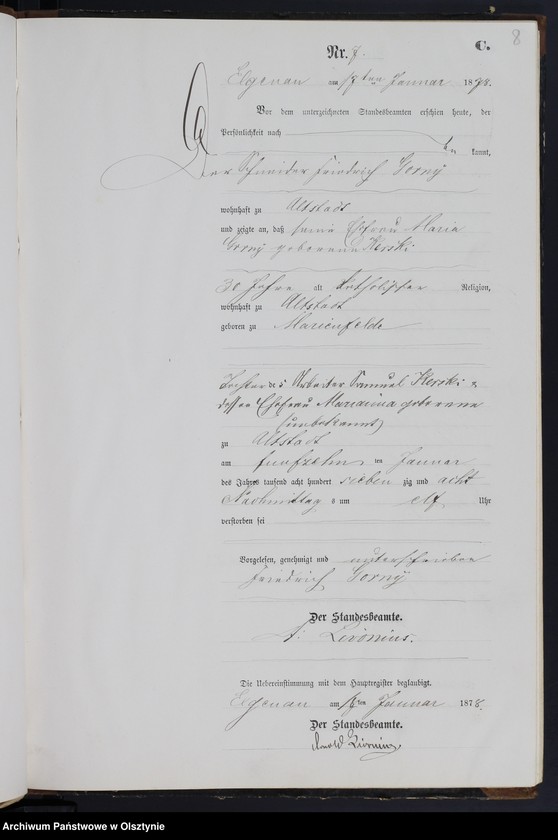 8
C.
Nr. 7.
Elgenau am 17ten Januar 1878.
Vor dem unterzeichneten Standesbeamten erschien heute, der
Persönlichkeit nach
kannt,
Der Schneider Friedrich Gorny
wohnhaft zu Altstadt
und zeigte an, daß seine Ehefrau Maria
Gorny geborene Kerski
30 Jahre alt katholischer Religion,
wohnhaft zu Altstadt
geboren zu Marienfelde
Tochter des Arbeiter Samuel Kerski &
dessen Ehefrau Marianna geborene
(unbekannt)
zu Altstadt
am fünfzehn ten Januar
des Jahres tausend acht hundert sieben zig und acht
Nachmittag s um elf Uhr
verstorben sei
Vorgelesen, genehmigt und unterschrieben
Friedrich Gorny
Der Standesbeamte.
Livonius.
Die Uebereinstimmung mit dem Hauptregister beglaubigt.
Elgenau am 17ten Januar 1878.
Der Standesbeamte.
Arnold Livonius
Archiwum Państwowe w Olsztynie